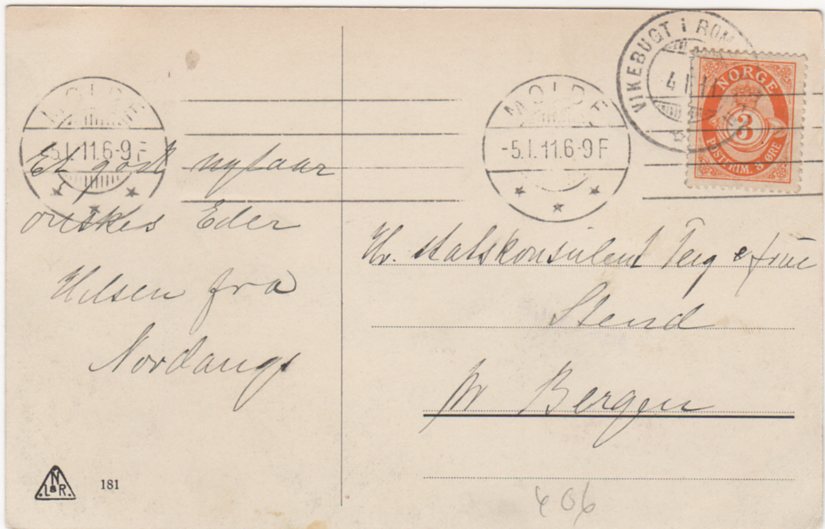 MOLDE
-5.I.11.6-9F
MOLDE
-5.I.11.6-9F
VIKEBUGT I ROM
4 I 11
NORGE
3
POSTFRIM. 3 ØRE
Et godt nytaar
ønskes Eder
Hilsen fra
Nordangs
Hr. statskonsulent Teig & frue
Stend
pr Bergen
N
L&R.
181
406